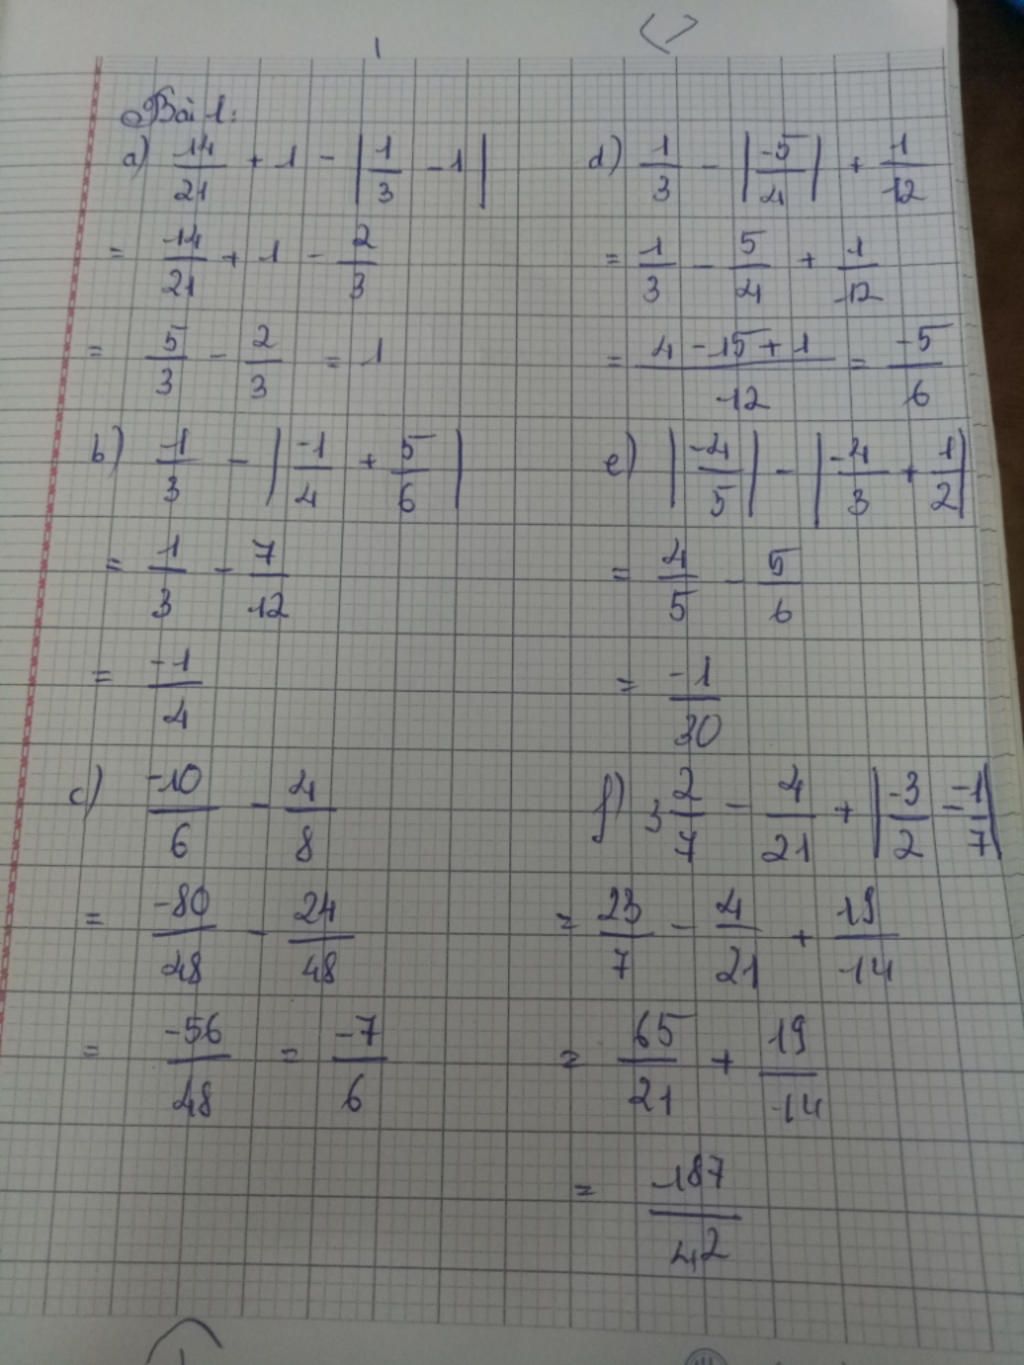 Bài 1:
a) 14/21 + 1 - |1/3 - 1|
= 14/21 + 1 - 2/3
= 5/3 - 2/3 = 1
b) 1/3 - |-1/4 + 5/6|
= 1/3 - 7/12
= -1/4
c) -10/6 - 4/8
= -80/48 - 24/48
= -56/48 = -7/6
d) 1/3 - |-5/4| + 1/12
= 1/3 - 5/4 + 1/12
= (4 - 15 + 1)/12 = -5/6
e) |-4/5| - |-4/3 + 1/2|
= 4/5 - 5/6
= -1/30
f) 3 2/7 - 4/21 + |-3/2 - -1/7|
= 23/7 - 4/21 + 19/14
= 65/21 + 19/14
= 187/42